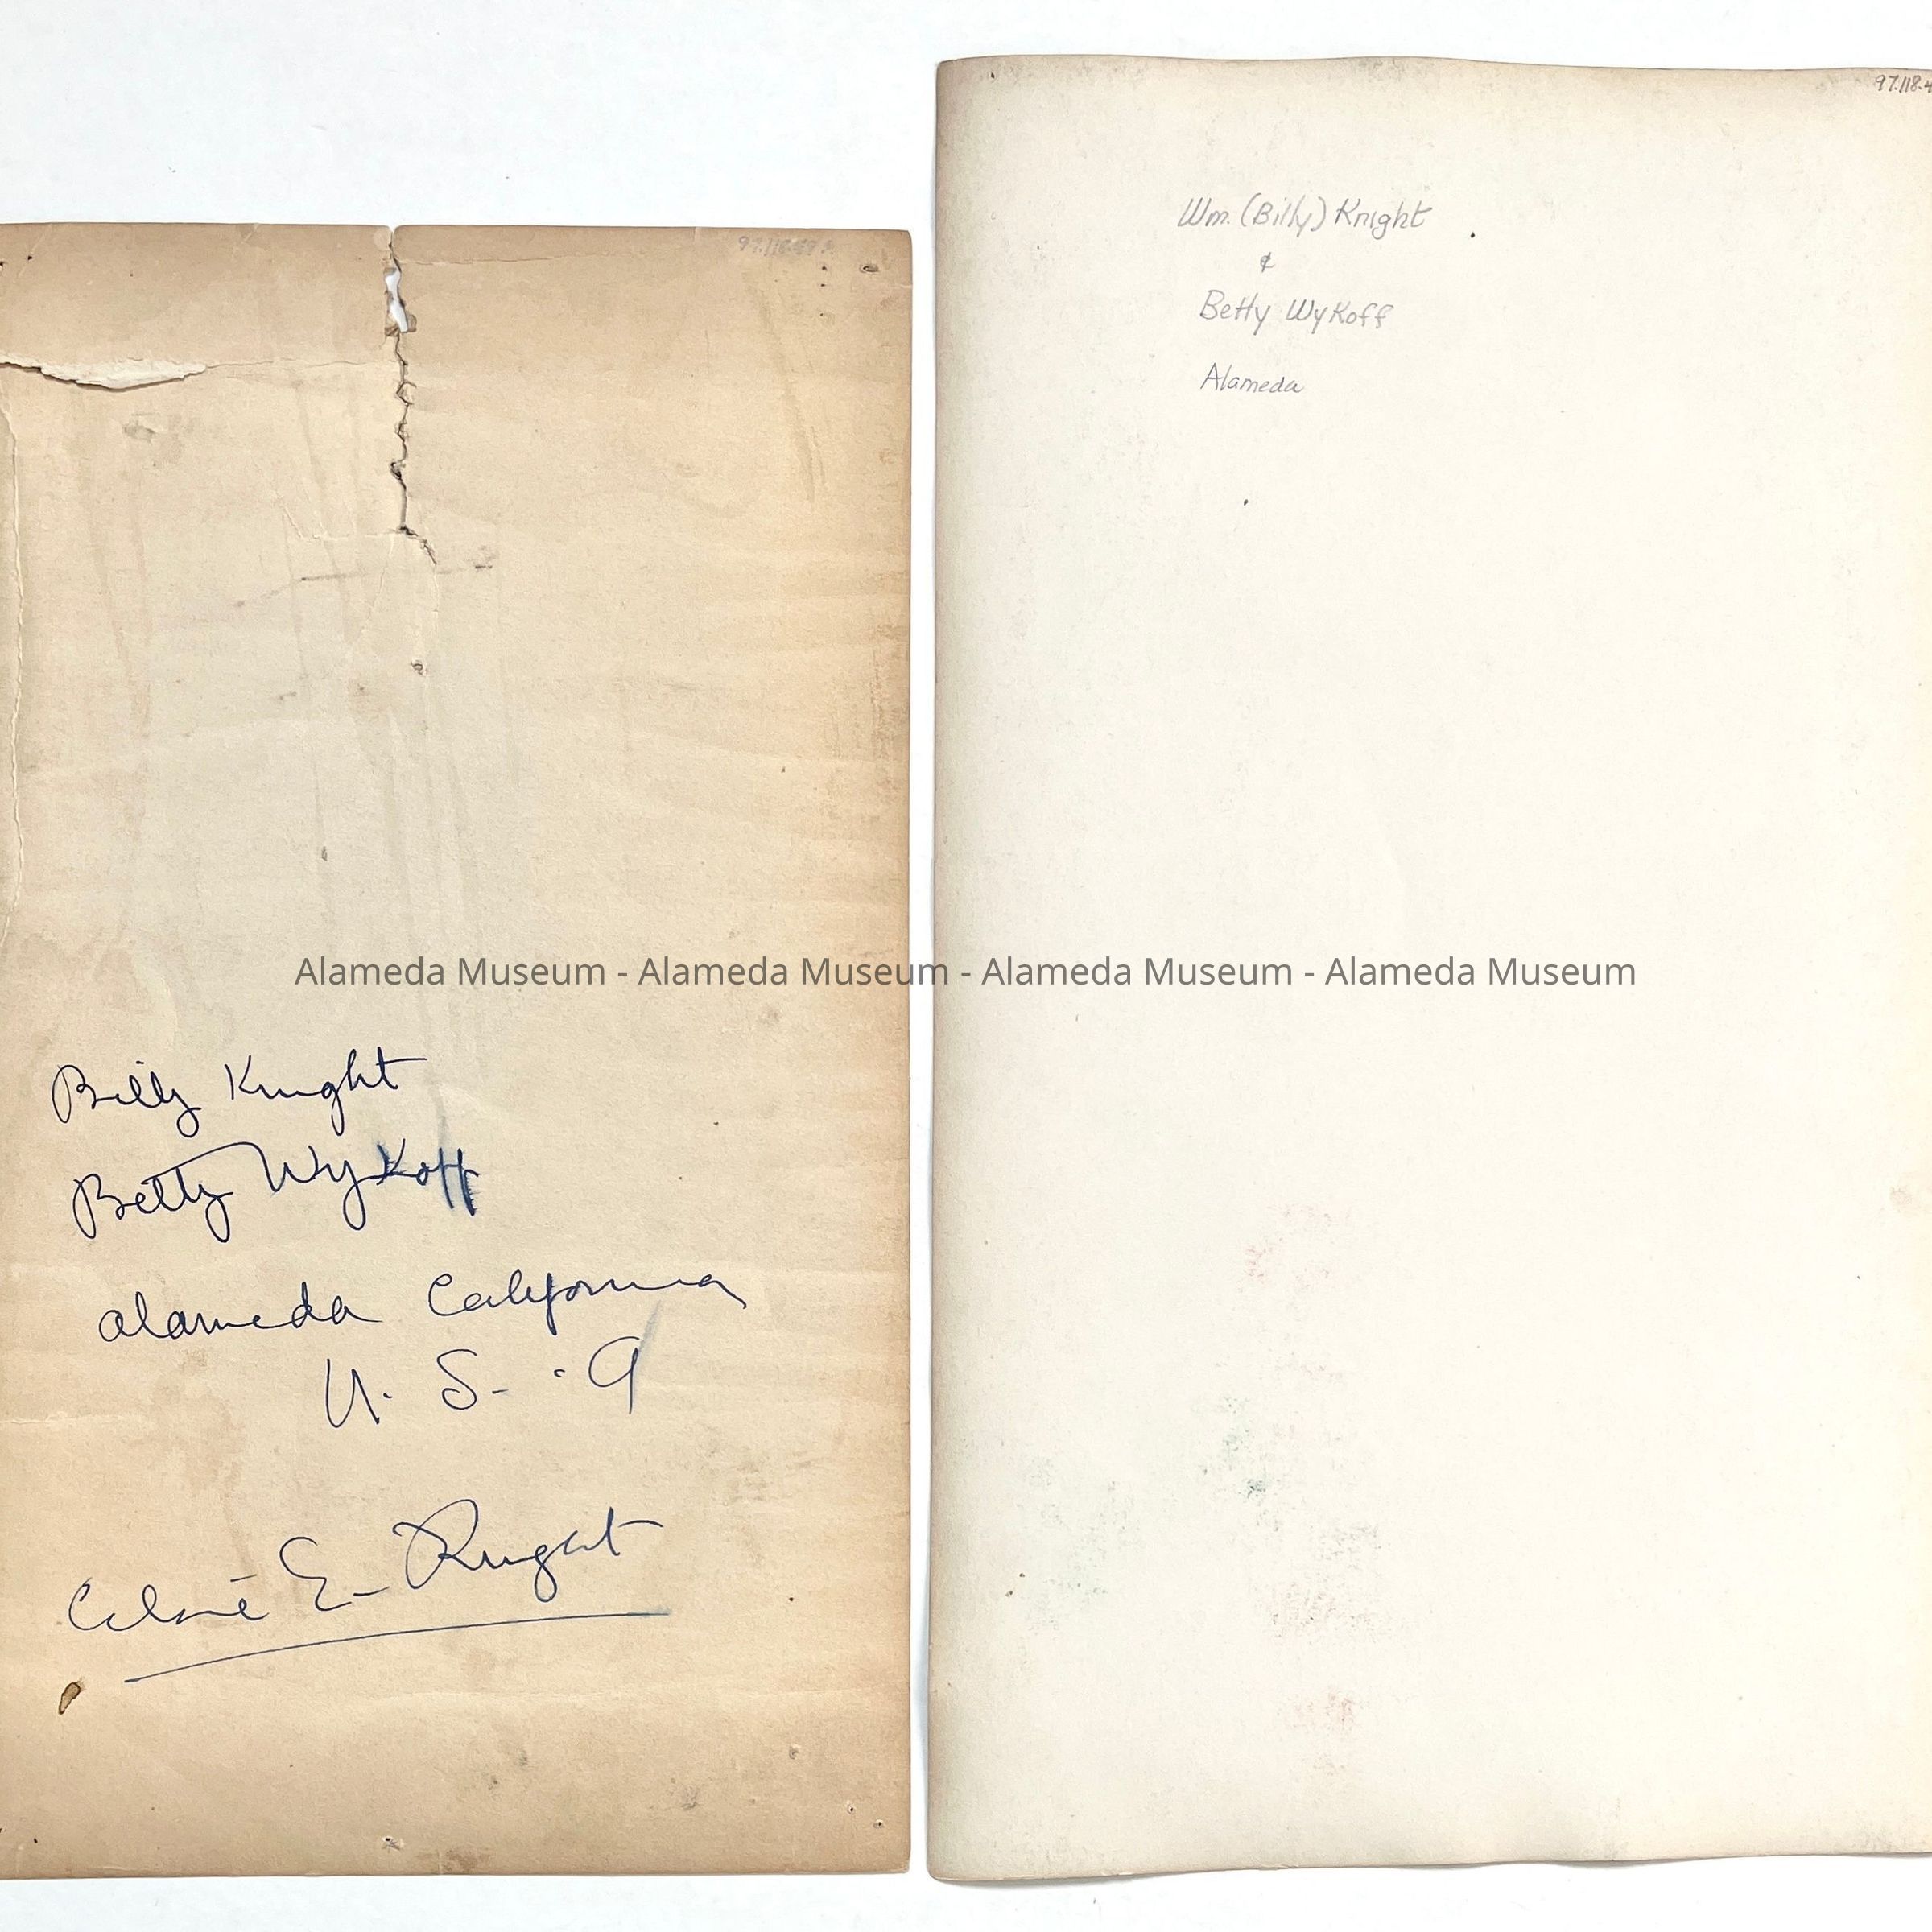 Billy Knight
Betty Wykoff
Alameda California
U. S. A
E. Knight
97.118-4
Wm. (Billy) Knight
&
Betty Wykoff
Alameda
Alameda Museum - Alameda Museum - Alameda Museum - Alameda Museum